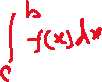 ∫_c^b f(x) dx